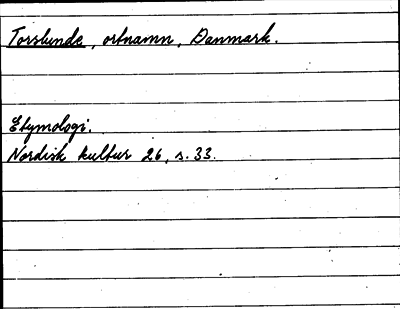 Torslunde, ortnamn, Danmark.
Etymologi.
Nordisk kultur 26, s. 33.